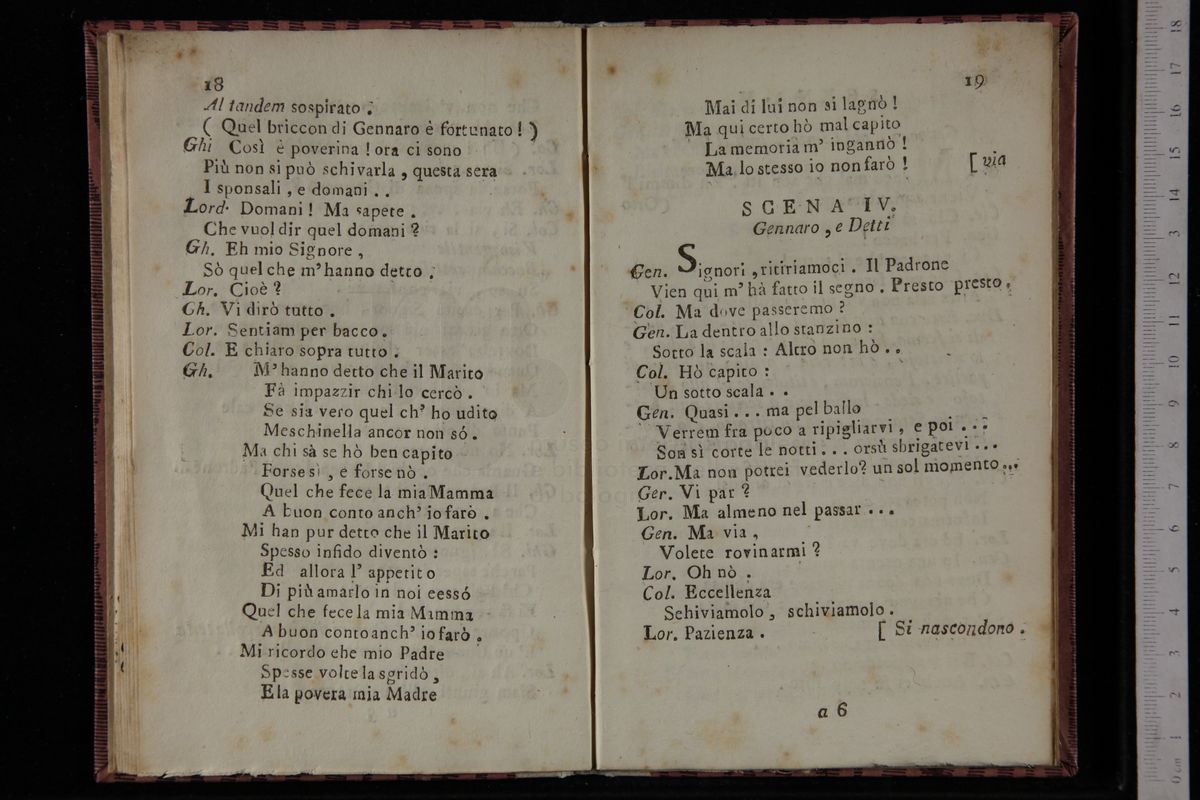 18
Al tandem sospirato .
( Quel briccon di Gennaro è fortunato ! )
Ghi Così è poverina ! ora ci sono
Più non si può schivarla , questa sera
I sponsali , e domani . .
Lord. Domani ! Ma sapete .
Che vuol dir quel domani ?
Gh. Eh mio Signore ,
Sò quel che m' hanno detto .
Lor. Cioè ?
Gh. Vi dirò tutto .
Lor. Sentiam per bacco .
Col. E chiaro sopra tutto .
Gh. M' hanno detto che il Marito
Fà impazzir chi lo cercò .
Se sia vero quel ch' ho udito
Meschinella ancor non só .
Ma chi sà se hò ben capito
Forse sì , e forse nò .
Quel che fece la mia Mamma
A buon conto anch' io farò .
Mi han pur detto che il Marito
Spesso infido diventò :
Ed allora l' appetito
Di più amarlo in noi eessó
Quel che fece la mia Mamma
A buon conto anch' io farò .
Mi ricordo ehe mio Padre
Spesse volte la sgridò ,
E la povera mia Madre
19
Mai di lui non si lagnò !
Ma qui certo hò mal capito
La memoria m' ingannò !
Ma lo stesso io non farò ! [ via
SCENA IV.
Gennaro , e Detti
Gen. Signori , ritiriamoci . Il Padrone
Vien qui m' hà fatto il segno . Presto presto .
Col. Ma dove passeremo ?
Gen. La dentro allo stanzino :
Sotto la scala : Altro non hò . .
Col. Hò capito :
Un sotto scala . .
Gen. Quasi . . . ma pel ballo
Verrem fra poco a ripigliarvi , e poi . . .
Son sì corte le notti . . . orsù sbrigatevi . . .
Lor. Ma non potrei vederlo ? un sol momento . . .
Ger. Vi par ?
Lor. Ma almeno nel passar . . .
Gen. Ma via ,
Volete rovinarmi ?
Lor. Oh nò .
Col. Eccellenza
Schiviamolo , schiviamolo .
Lor. Pazienza . [ Si nascondono .
a 6
0 cm 1 2 3 4 5 6 7 8 9 10 11 12 13 14 15 16 17 18